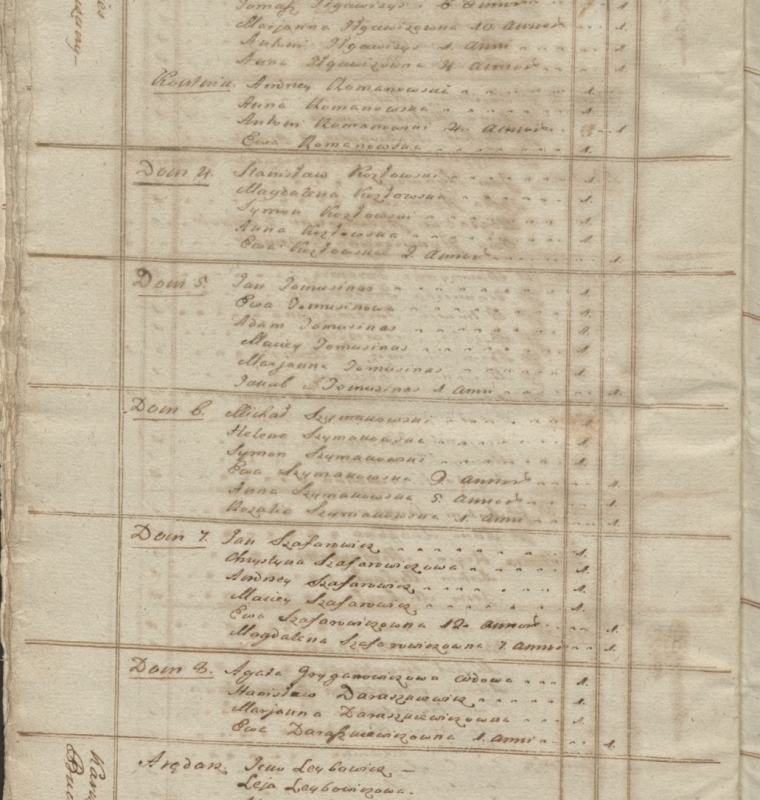 Marjanna Ilgawiczowna 10 annor
Antoni Ilgawicz 1. anni
Anna Ilgawiczowna 4 annor
Andrzey Romanowski 1.
Anna Romanowska 1.
Antoni Romanowski 4. annor 1
Ewa Romanowska 1.
Dom 4. Stanisław Kozłowski 1.
Magdalena Kozłowska 1.
Symon Kozłowski 1.
Anna Kozłowska 1.
Ewa Kozłowska annor 1.
Dom 5. Jan Tomusinas 1.
Ewa Tomusinowa 1.
Adam Tomusinas 1.
Maciey Tomusinas 1.
Marjanna Tomusinas 1.
Jakub Tomusinas 1 anni 1.
Dom 6. Michał Szymanowski 1.
Helena Szymanowska 1.
Symon Szymanowski 1.
Ewa Szymanowska 9 annor 1.
Anna Szymanowska 5. annor 1.
Rozalia Szymanowska 1. anni 1.
Dom 7. Jan Szafarowicz 1.
Chrystyna Szafarowiczowa 1.
Andrzey Szafarowicz 1.
Maciey Szafarowicz 1.
Ewa Szafarowiczowna 12. annor 1.
Magdalena Szafarowiczowna 7 annor 1.
Dom 8. Agata Gryganowiczowa wdowa 1.
Stanisław Daraszkiewicz 1.
Marjanna Daraszkiewiczowna 1.
Ewa Daraszkiewiczowna 1. anni 1.
Arędarz Leybowicz
Leja Leybowiczowa.